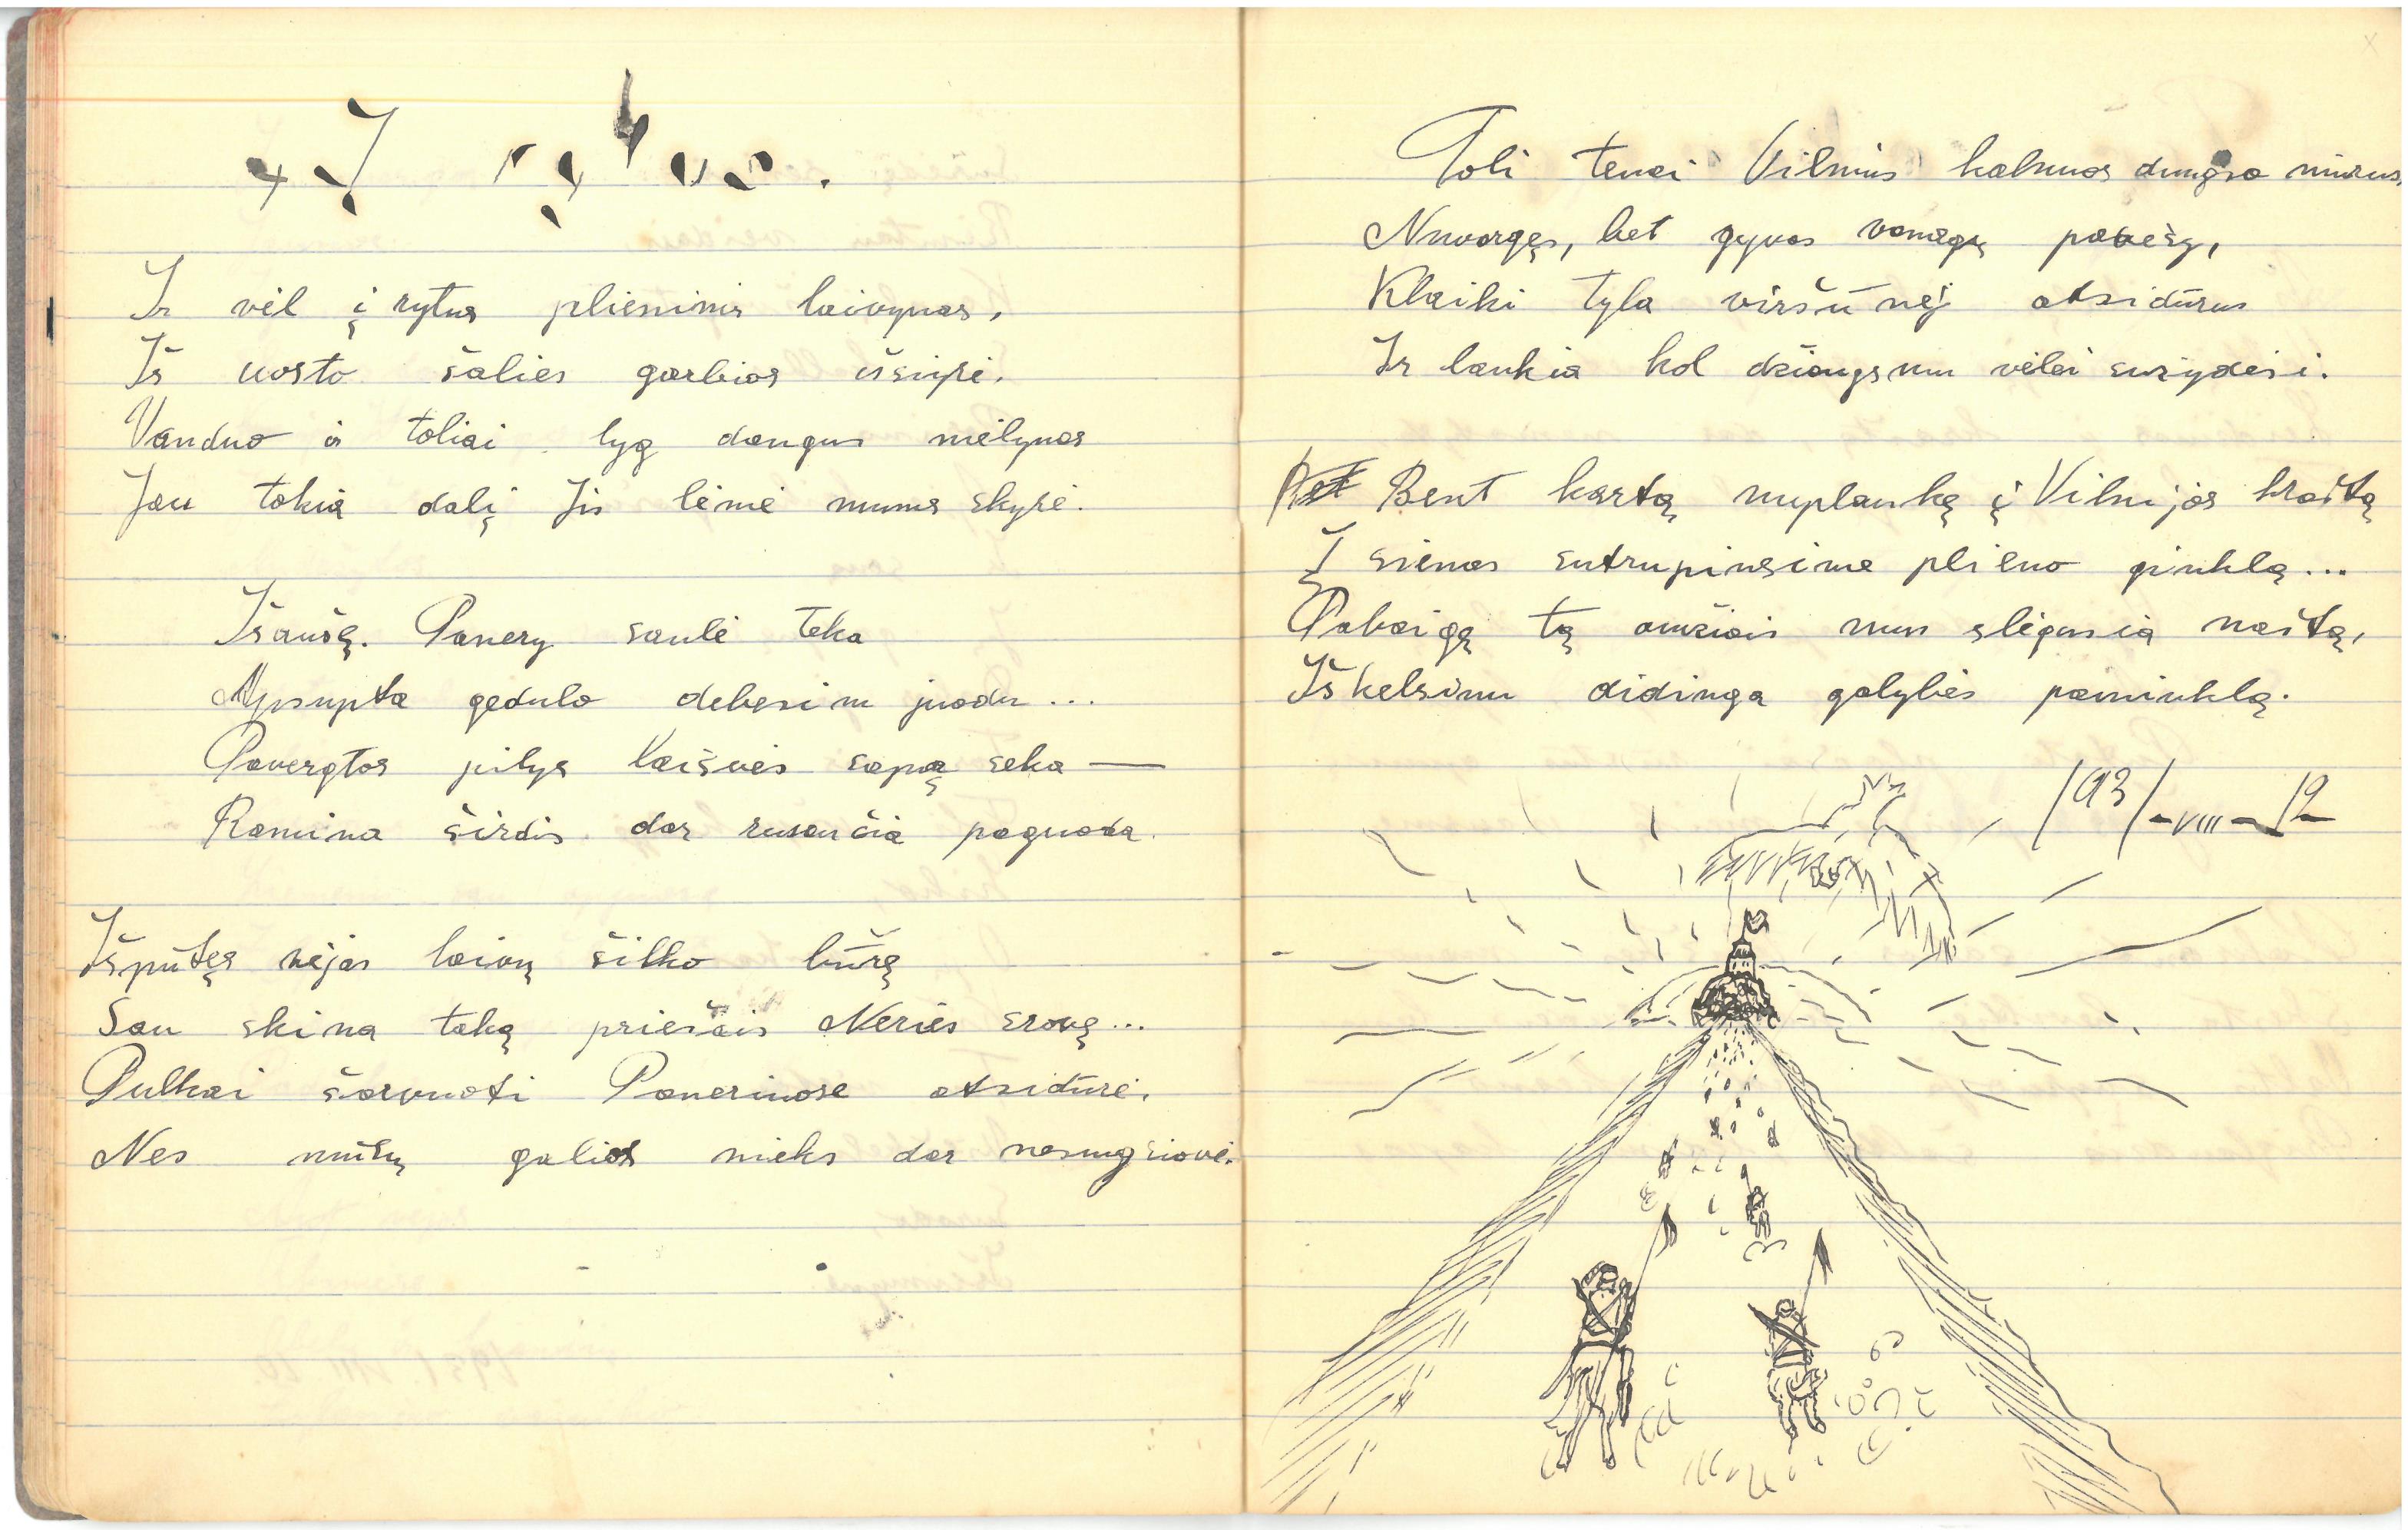 Į rytus.
Ir vėl į rytus plieninis laivynas,
Iš uosto šalies garbios išsiyrė.
Vanduo iš toliai lyg dangus mėlynas
Jau tokią dalį Jis lėmė mums skyrė.
Išaušę. Panery saulė teka
Apsupta gedulo debesim juodu...
Pavergtos pilys Laisvės sapną seka —
Ramina širdis dar rusenčia paguoda.
Išpūtęs vėjas laivų šilko būrę
Sau skina taką priešais Neries srovę...
Pulkai šarvuoti Paneriuose atsidūrė,
Nes mūsų galios nieks dar nesugriovė.
Toli tenai Vilnius kalnuos dungso niūrus,
Nuvargęs, bet gyvas vanagų pavėsy,
Klaiki tyla viršūnėj atsidūrus
Ir laukia kol džiaugsmu vėlei sužydėsi.
Bet Bent kartą nuplauką į Vilnijos kraštą
Į sienas sutrupinsime plieno ginklą...
Pabaigę tą amžiais mus slėgusią naštą,
Iškelsimu didinga galybės paminklą.
1931-VIII-12